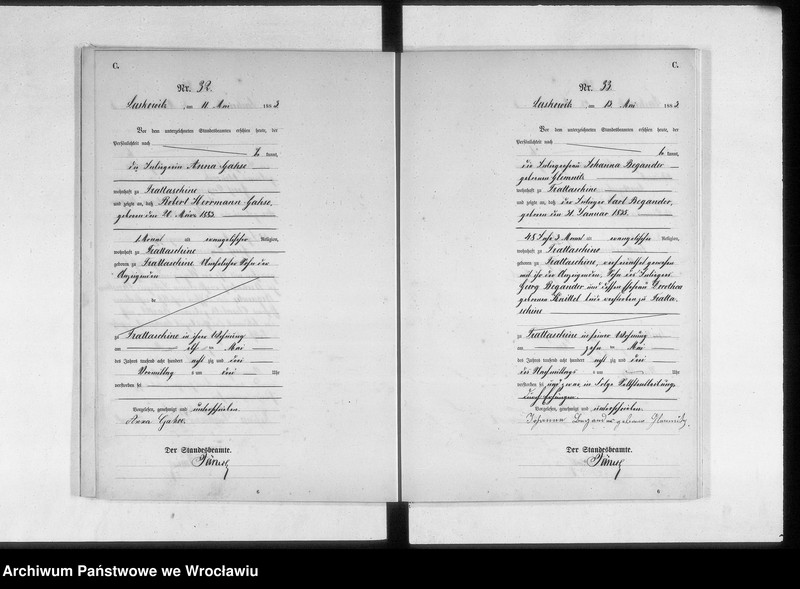 C.
Nr. 32.
Laskowitz am 11 Mai 1883
Vor dem unterzeichneten Standesbeamten erschien heute, der
Persönlichkeit nach
kannt,
die Inliegerin Anna Gahse
wohnhaft zu Trattaschine
und zeigte an, daß Robert Herrmann Gahse,
geboren den 20. März 1883.
1 Monat alt evangelischer Religion,
wohnhaft zu Trattaschine
geboren zu Trattaschine Unehelicher Sohn der
Anzeigenden
de
zu Trattaschine in ihrer Wohnung
am elf ten Mai
des Jahres tausend acht hundert acht zig und drei
Vormittag s um drei Uhr
verstorben sei
Vorgelesen, genehmigt und unterschrieben.
Anna Gahse.
Der Standesbeamte.
C.
Nr. 33.
Laskowitz am 12. Mai 1883
Vor dem unterzeichneten Standesbeamten erschien heute, der
Persönlichkeit nach
kannt,
die Inliegersfrau Johanna Begander
geborenen
wohnhaft zu Trattaschine
und zeigte an, daß der Inlieger Carl Begander,
geboren den 31. Januar 1835.
48 Jahr 3 Monat alt evangelischer Religion,
wohnhaft zu Trattaschine
geboren zu Trattaschine, verheirathet gewesen
mit ihr der Anzeigenden, Sohn des Inliegers
Georg Begander und dessen Ehefrau Dorothea
geborenen Knittel beide verstorben zu Tratta-
schine
zu Trattaschine in seiner Wohnung
am zehn ten Mai
des Jahres tausend acht hundert acht zig und drei
des Nachmittags um Uhr
verstorben sei und zwar in Folge Selbstentleibung
durch Erhängen.
Vorgelesen, genehmigt und unterschrieben.
Johanna Begander geborene
Der Standesbeamte.
Archiwum Państwowe we Wrocławiu